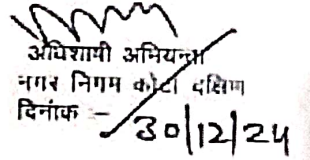 अधिशाषी अभियन्ता
नगर निगम कोटा दक्षिण
दिनांक - 30/12/24